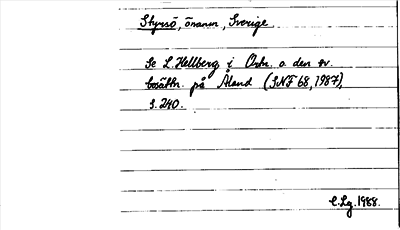 Styrsö, önamn, Sverige
Se L. Hellberg i Ortn. o. den sv.
bosättn. på Åland (SNF 68, 1987),
s. 240.
C.Lg. 1988.